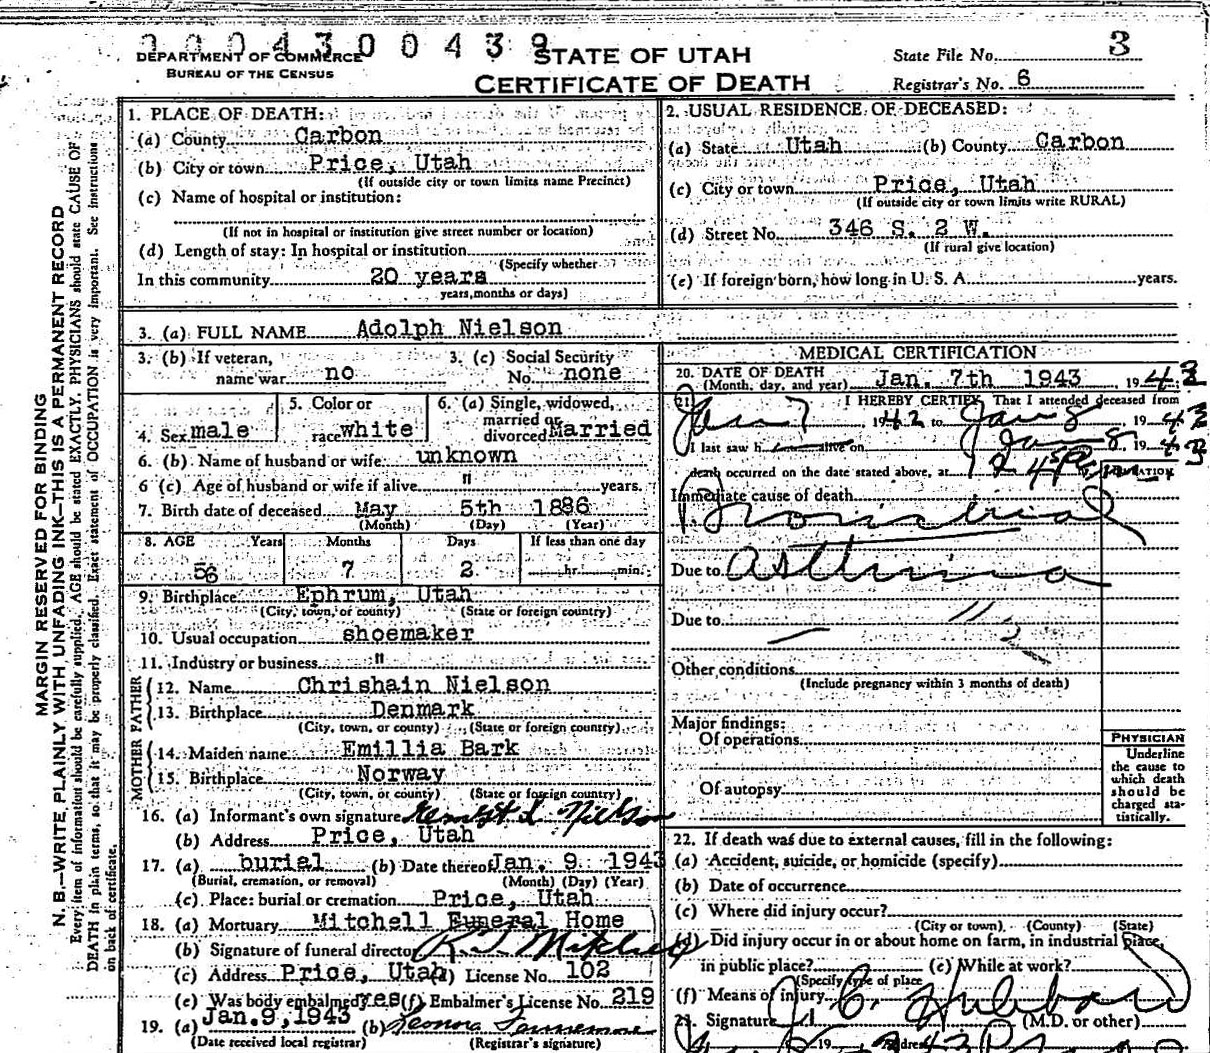 000430 0439
DEPARTMENT OF COMMERCE
BUREAU OF THE CENSUS
STATE OF UTAH
CERTIFICATE OF DEATH
State File No. 3
Registrar's No. 6
MARGIN RESERVED FOR BINDING
N. B.—WRITE PLAINLY WITH UNFADING INK—THIS IS A PERMANENT RECORD
Every item of information should be carefully supplied. AGE should be stated EXACTLY. PHYSICIANS should state CAUSE OF
DEATH in plain terms, so that it may be properly classified. Exact statement of OCCUPATION is very important. See instructions
on back of certificate.
1. PLACE OF DEATH:
(a) County Carbon
(b) City or town Price, Utah
(If outside city or town limits name Precinct)
(c) Name of hospital or institution:
(If not in hospital or institution give street number or location)
(d) Length of stay: In hospital or institution
(Specify whether
In this community 20 years
years, months or days)
2. USUAL RESIDENCE OF DECEASED:
(a) State Utah (b) County Carbon
(c) City or town Price, Utah
(If outside city or town limits write RURAL)
(d) Street No. 346 S. 2 W.
(If rural give location)
(e) If foreign born, how long in U. S. A. years.
3. (a) FULL NAME Adolph Nielson
3. (b) If veteran, name war no
3. (c) Social Security No. none
4. Sex male
5. Color or race white
6. (a) Single, widowed, married or divorced Married
6. (b) Name of husband or wife unknown
6 (c) Age of husband or wife if alive " years.
7. Birth date of deceased May 5th 1886
(Month) (Day) (Year)
8. AGE Years Months Days If less than one day
56 7 2 hr. min.
9. Birthplace Ephrum, Utah
(City, town, or county) (State or foreign country)
10. Usual occupation shoemaker
11. Industry or business "
FATHER
12. Name Chrishain Nielson
13. Birthplace Denmark
(City, town, or county) (State or foreign country)
MOTHER
14. Maiden name Emillia Bark
15. Birthplace Norway
(City, town, or county) (State or foreign country)
16. (a) Informant's own signature Nielson
(b) Address Price, Utah
17. (a) burial (b) Date thereof Jan. 9 1943
(Burial, cremation, or removal) (Month) (Day) (Year)
(c) Place: burial or cremation Price, Utah
18. (a) Mortuary Mitchell Funeral Home
(b) Signature of funeral director
(c) Address Price, Utah (d) License No. 102
(e) Was body embalmed yes (f) Embalmer's License No. 219
19. (a) Jan. 9, 1943 (b) Leonora
(Date received local registrar) (Registrar's signature)
MEDICAL CERTIFICATION
20. DATE OF DEATH
(Month, day, and year) Jan. 7th 1943, 1943
21. I HEREBY CERTIFY, That I attended deceased from
Jan 7, 1942 to Jan 8, 1943
I last saw h alive on Jan 8, 1943
death occurred on the date stated above, at
DURATION
Immediate cause of death
Bronchial
Due to Asthma
Due to
Other conditions
(Include pregnancy within 3 months of death)
Major findings:
Of operations
Of autopsy
PHYSICIAN
Underline
the cause to
which death
should be
charged sta-
tistically.
22. If death was due to external causes, fill in the following:
(a) Accident, suicide, or homicide (specify)
(b) Date of occurrence
(c) Where did injury occur?
(City or town) (County) (State)
(d) Did injury occur in or about home on farm, in industrial place,
in public place? (e) While at work?
(Specify type of place
(f) Means of injury
23. Signature J. C. Hubbard (M.D. or other)